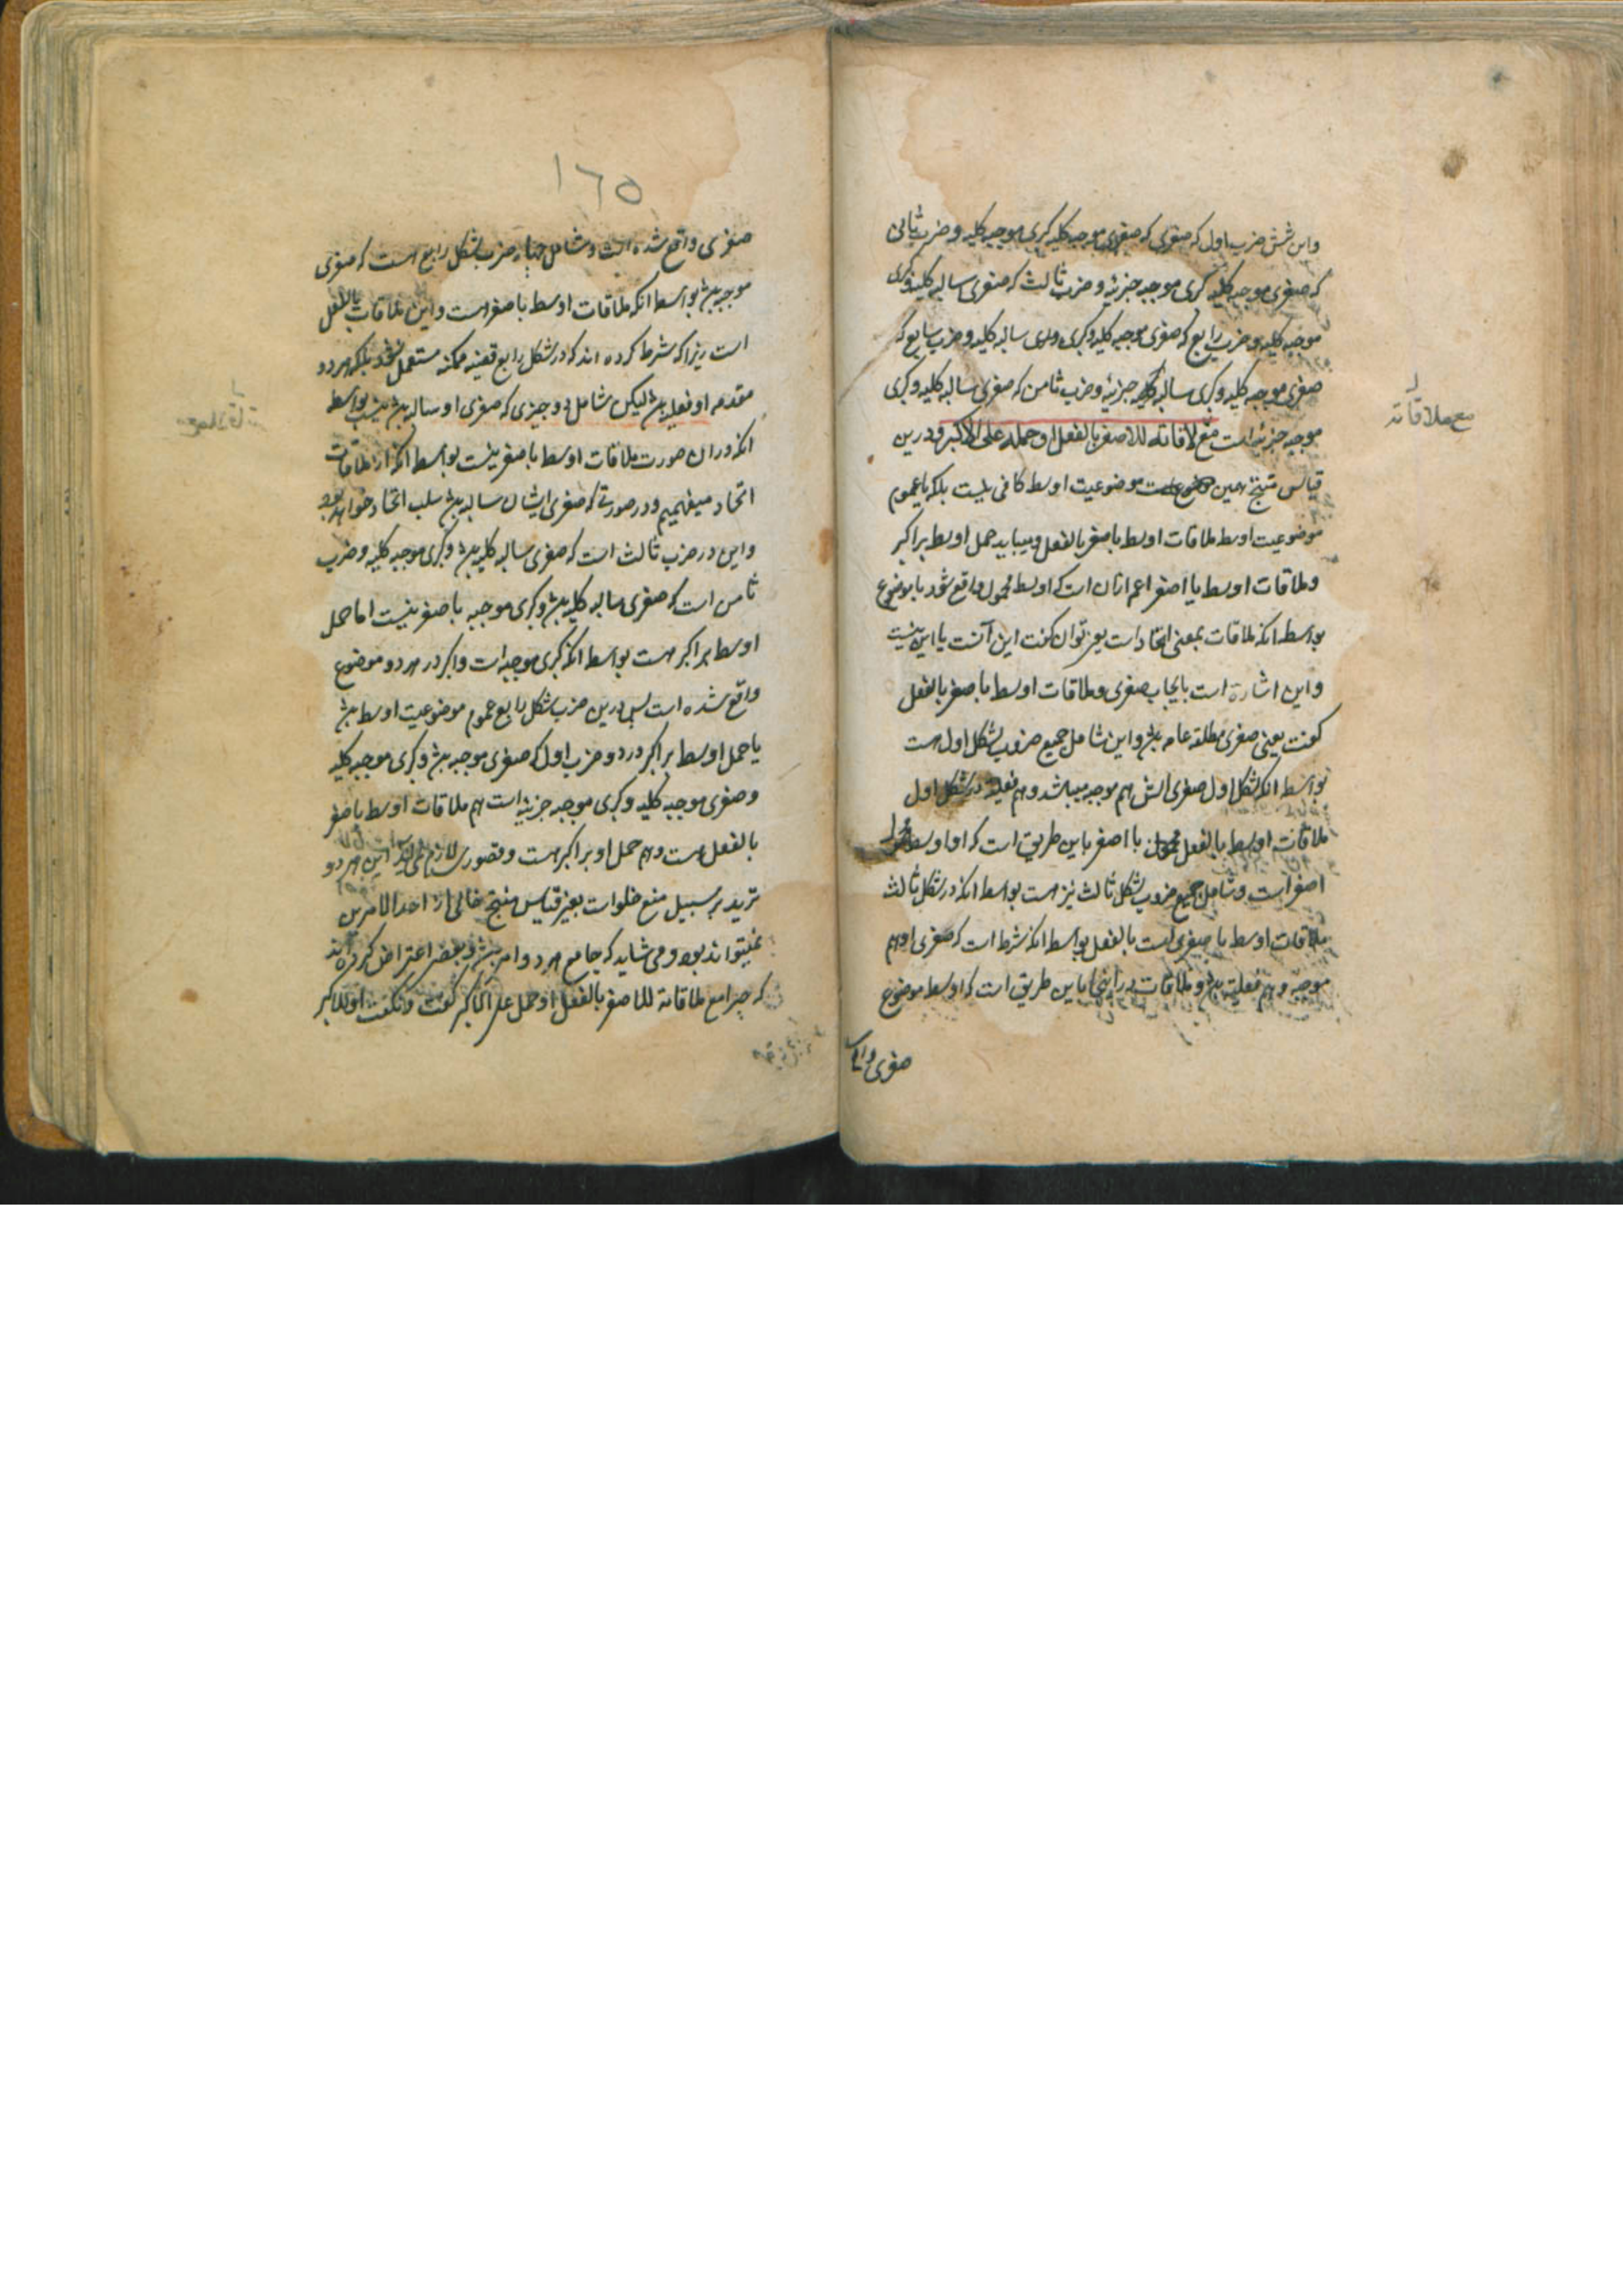 واین شش ضرب اول که صغری که صغری موجبه کلیه کبری موجبه کلیه و ضرب ثانی
که صغری موجبه کلیه کبری موجبه جزئیه و ضرب ثالث که صغری سالبه کلیه و کبری
موجبه کلیه و ضرب رابع که صغری موجبه کلیه و کبری سالبه کلیه و ضرب سابع که
صغری موجبه کلیه و کبری سالبه جزئیه و ضرب ثامن که صغری سالبه کلیه و کبری
موجبه جزئیه است مع لاقاته للاصغر بالفعل او حمله علی الاکبر و درین
قیاس منتج همین موضوعیت اوسط کافی نیست بلکه با عموم
موضوعیت اوسط ملاقات اوسط با صغر بالفعل و میباید حمل اوسط بر اکبر
و ملاقات اوسط با اصغر اعم ازان است که اوسط محمول واقع شود یا موضوع
بواسطه انکه ملاقات بمعنی اتحاد است یعنی توان کفت این آنست یا این نیست
و این اشارة است بایجاب صغری و ملاقات اوسط با صغر بالفعل
کفت یعنی صغری مطلقه عامه باشد و این شامل جمیع ضروب شکل اول هست
بواسطه انکه شکل اول صغری اش هم موجبه میباشد و هم فعلیه در شکل اول
ملاقات اوسط بالفعل با اصغر باین طریق است که او اوسط محمول
اصغر است و شامل جمیع ضروب شکل ثالث نیز هست بواسطه انکه در شکل ثالث
ملاقات اوسط با صغری است بالفعل بواسطه انکه شرط است که صغری او هم
موجبه و هم فعلیه باشد و ملاقات در اینجا باین طریق است که اوسط موضوع
صغری واقع
مع ملاقاته
١٦٥
صغری واقع شده است و شامل چهار ضرب شکل رابع است که صغری
موجبه باشد بواسطه انکه ملاقات اوسط با صغر است و این ملاقات بالفعل
است زیرا که شرط کرده اند که در شکل رابع قضیه ممکنه مستعمل نشود بلکه هر دو
مقدمه او فعلیه باشد لیکن شامل دو چیزی که صغری او سالبه باشد نیست بواسطه
انکه دران صورت ملاقات اوسط با صغر نیست بواسطه انکه از ملاقات
اتحاد میفهمیم و در صورتی که صغری ایشان سالبه باشد سلب اتحاد خواهد بود
و این در ضرب ثالث است که صغری سالبه کلیه باشد و کبری موجبه کلیه و ضرب
ثامن است که صغری سالبه کلیه باشد و کبری موجبه با صغر نیست اما حمل
اوسط بر اکبر هست بواسطه انکه کبری موجبه است و اکبر در هر دو موضوع
واقع شده است پس درین ضرب شکل رابع عموم موضوعیت اوسط باشد
یا حمل اوسط بر اکبر در دو ضرب اول که صغری موجبه باشد و کبری موجبه کلیه
و صغری موجبه کلیه و کبری موجبه جزئیه است هم ملاقات اوسط با صغر
بالفعل هست و هم حمل او بر اکبر هست و قصوری لازم نمی آید این هر دو
تردید بر سبیل منع خلو است یعنی قیاس منتج خالی از احد الامرین
نمیتواند بود و می شاید که جامع هر دو امر باشد و بعضی اعتراض کرده اند
که چرا مع ملاقاته للاصغر بالفعل او حمل علی الاکبر کفت و نکفت او للاکبر